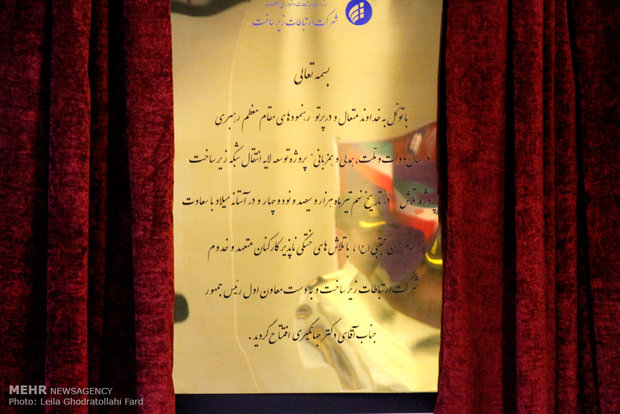 وزارت ارتباطات و فناوری اطلاعات
شرکت ارتباطات زیرساخت
بسمه تعالی
با توکل به خداوند متعال و در پرتو رهنمودهای مقام معظم رهبری
در سال دولت و ملت، همدلی و همزبانی" پروژه توسعه لایه انتقال شبکه زیرساخت
پروژه تلاش" در تاریخ نهم تیرماه هزار و سیصد و نود و چهار و در آستانه میلاد با سعادت
امام حسن مجتبی (ع) ، با تلاش های خستگی ناپذیر کارکنان متعهد و خدوم
شرکت ارتباطات زیرساخت و به دست معاون اول رئیس جمهور
جناب آقای دکتر جهانگیری افتتاح گردید .
MEHR NEWSAGENCY
Photo: Leila Ghodratollahi Fard